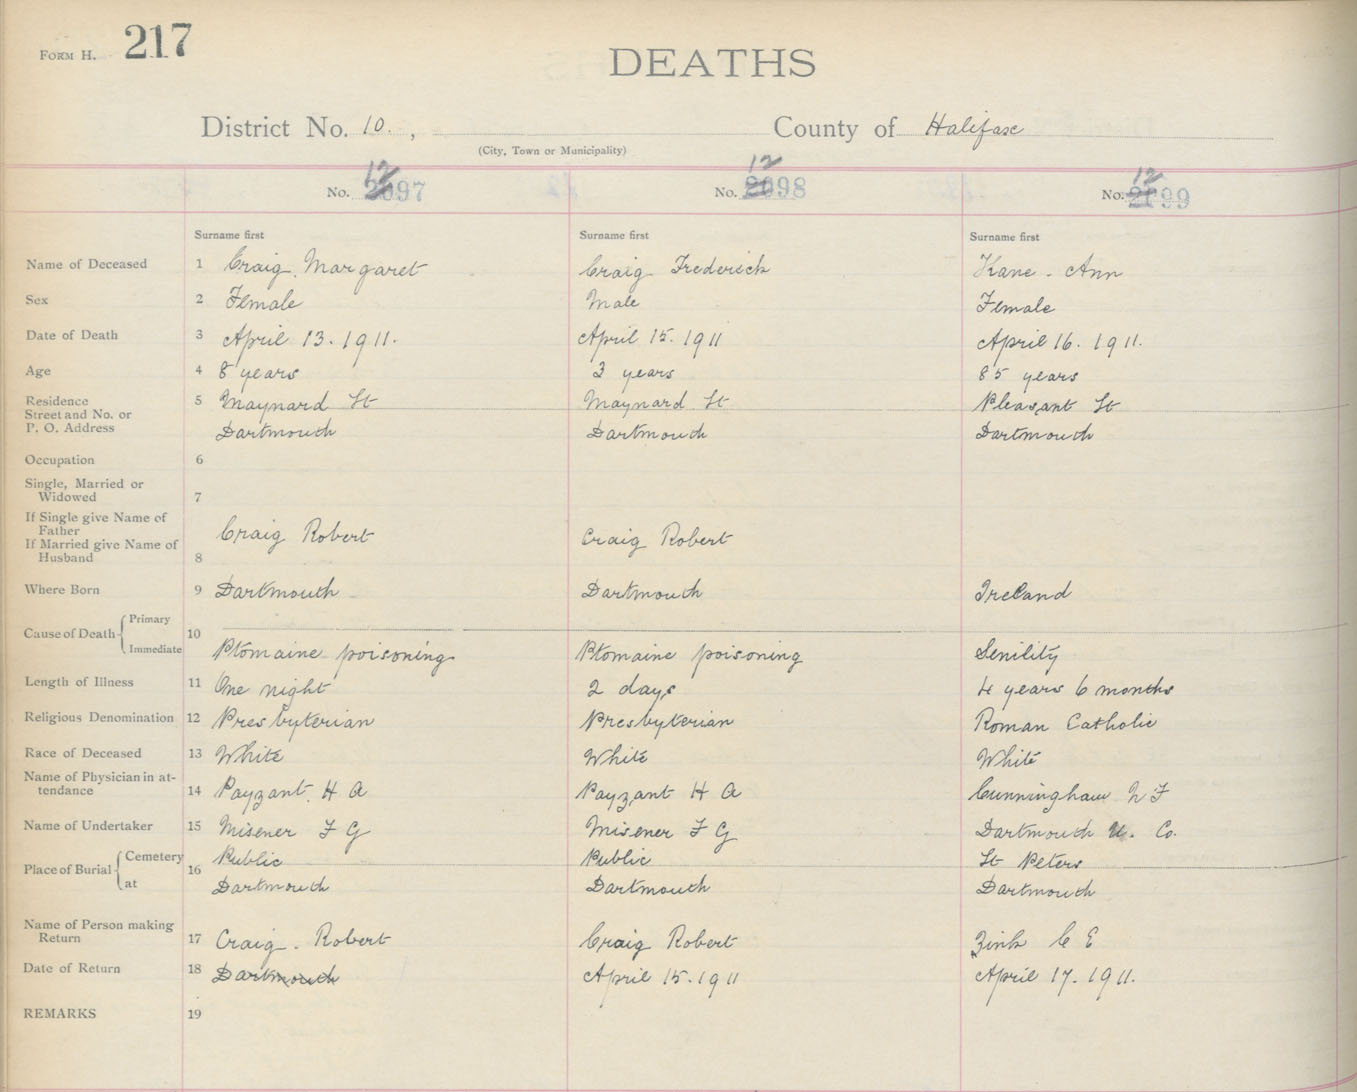 FORM H. 217
DEATHS
District No. 10. , County of Halifax
(City, Town or Municipality)
No. 2097 12 No. 2098 12 No. 2099 12
Surname first Surname first Surname first
Name of Deceased 1 Craig. Margaret Craig Frederick Kane - Ann
Sex 2 Female Male Female
Date of Death 3 April 13. 1911. April 15. 1911 April 16. 1911.
Age 4 8 years 3 years 85 years
Residence 5 Maynard St Maynard St Pleasant St
Street and No. or
P. O. Address Dartmouth Dartmouth Dartmouth
Occupation 6
Single, Married or
Widowed 7
If Single give Name of
Father Craig Robert Craig Robert
If Married give Name of
Husband 8
Where Born 9 Dartmouth Dartmouth Ireland
Cause of Death Primary 10
Immediate Ptomaine poisoning Ptomaine poisoning Senility
Length of Illness 11 One night 2 days 4 years 6 months
Religious Denomination 12 Presbyterian Presbyterian Roman Catholic
Race of Deceased 13 White White White
Name of Physician in at-
tendance 14 Payzant. H A Payzant H A Cunningham N F
Name of Undertaker 15 Misener F G Misener F G Dartmouth U. Co.
Place of Burial Cemetery 16 Public Public St Peters
at Dartmouth Dartmouth Dartmouth
Name of Person making
Return 17 Craig. Robert Craig Robert Zink C E
Date of Return 18 Dartmouth April 15. 1911 April 17. 1911.
REMARKS 19